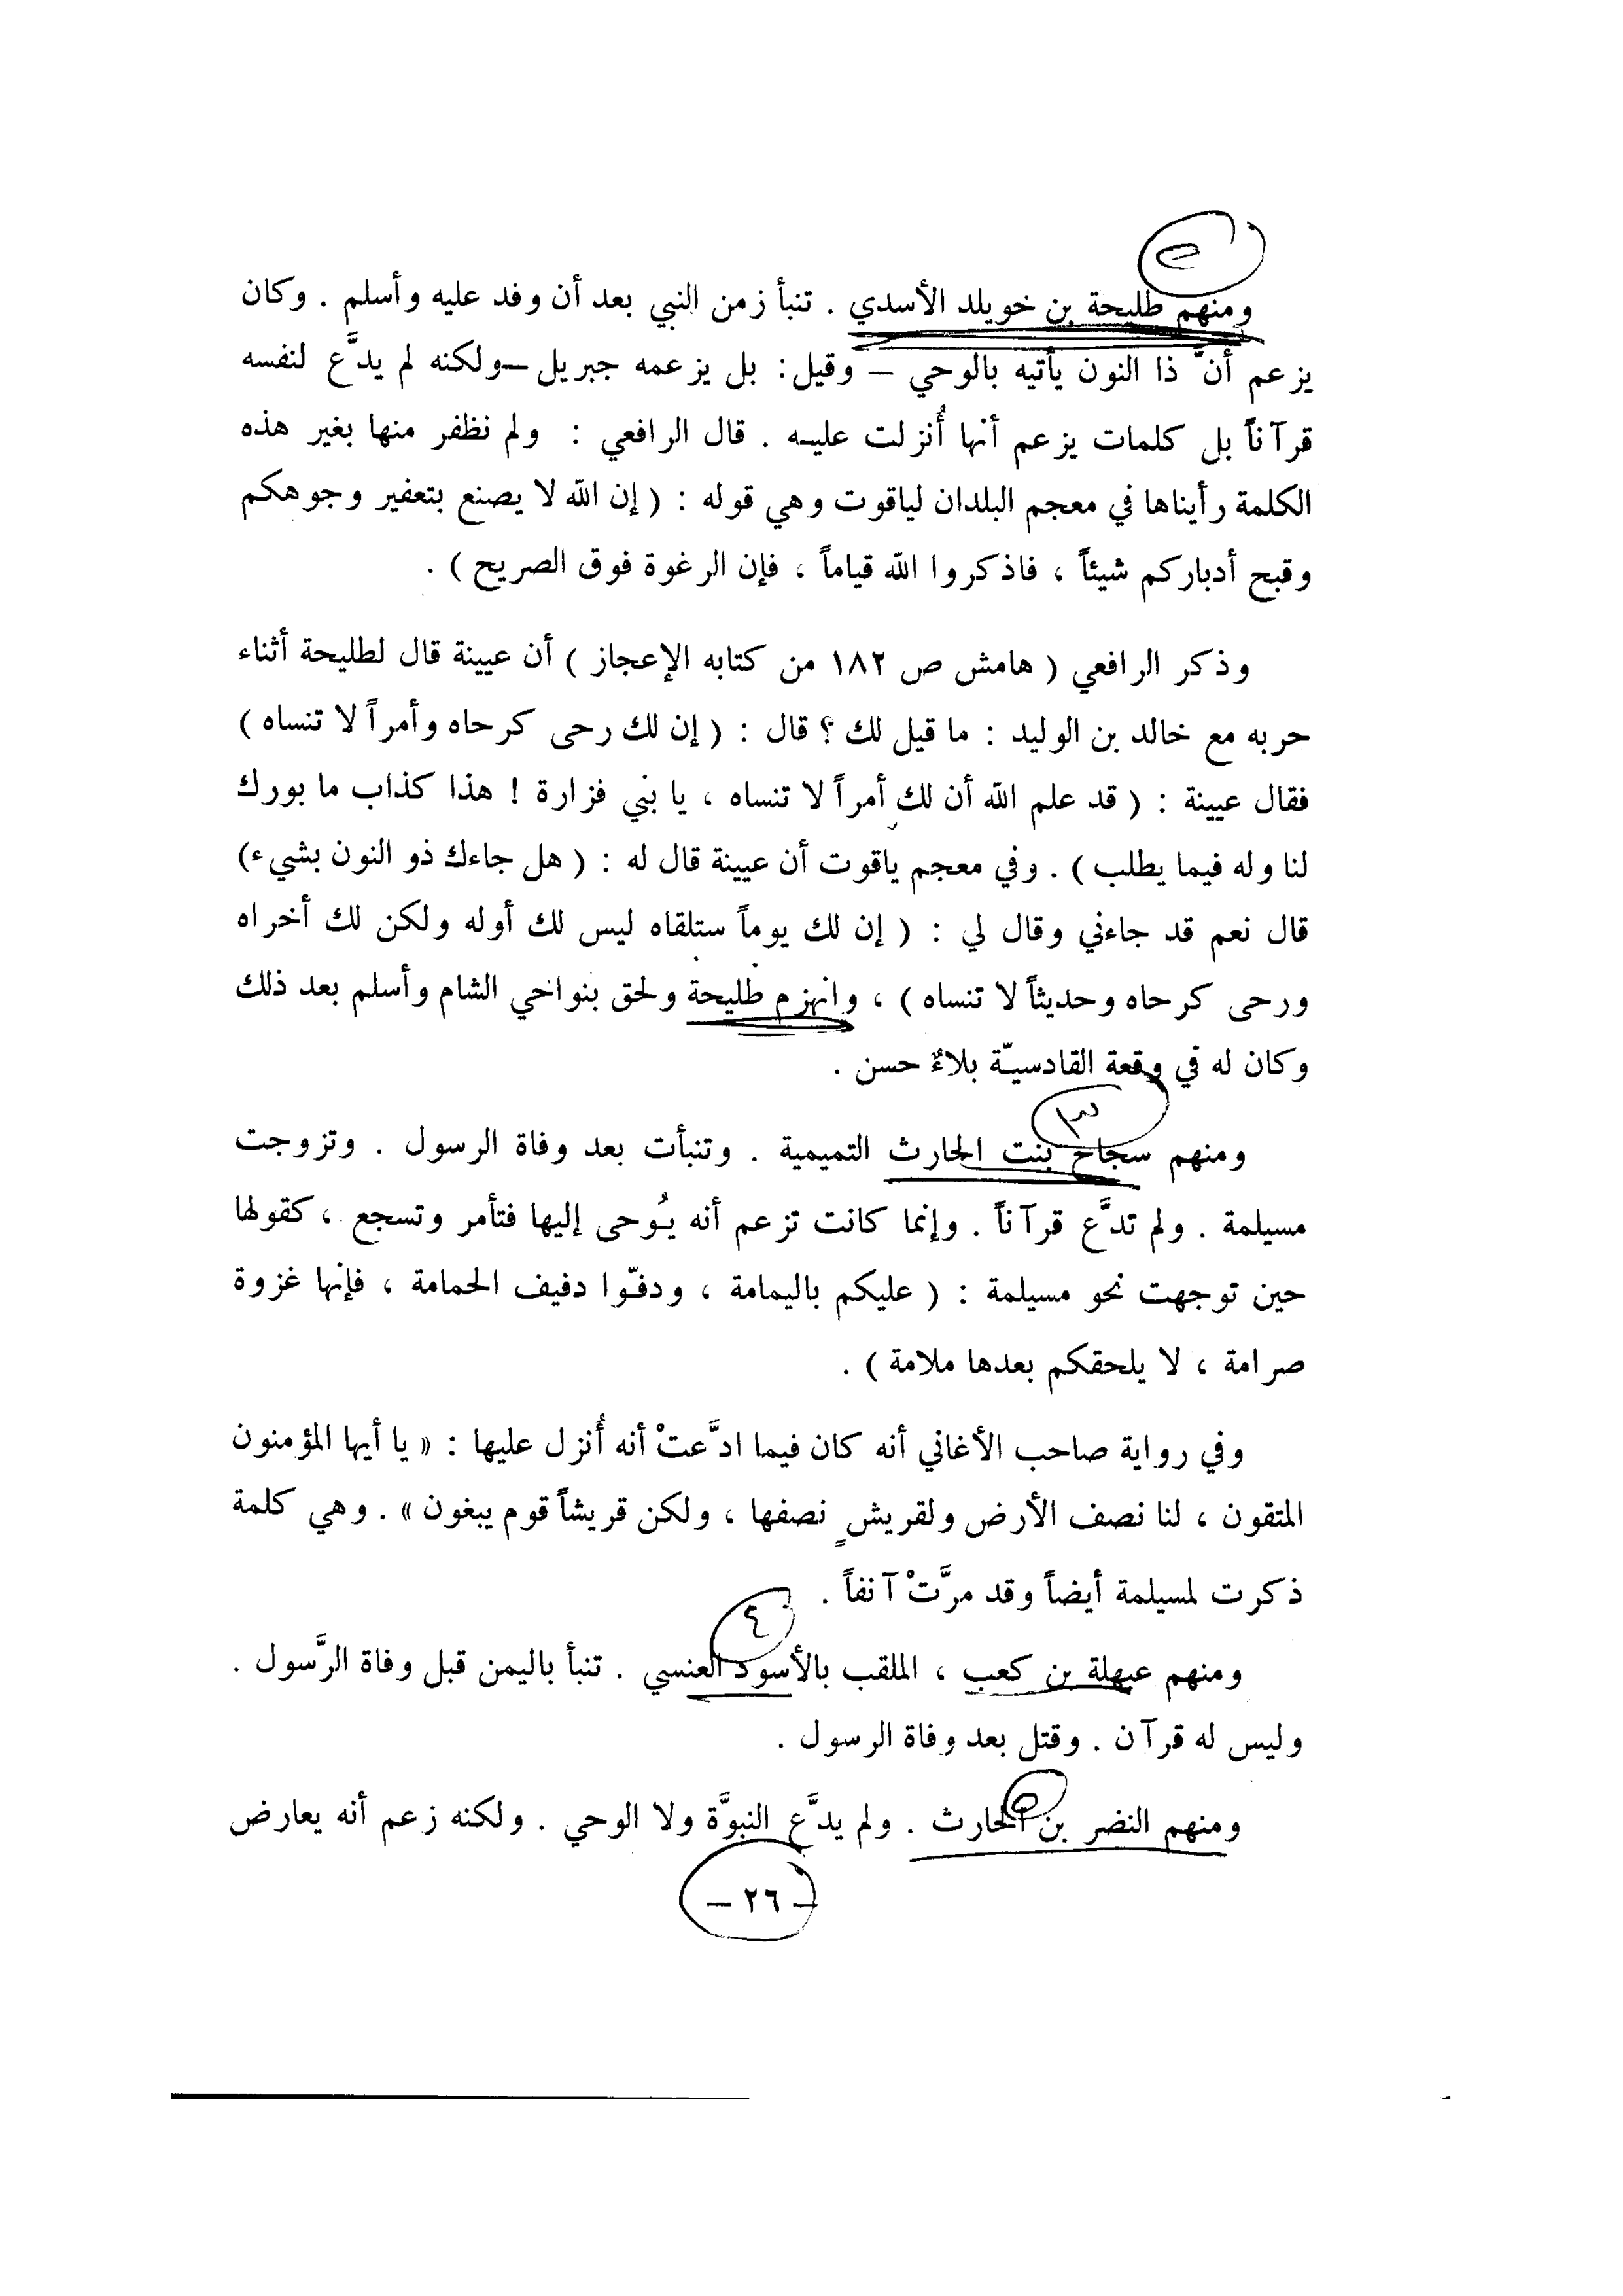 ومنهم طليحة بن خويلد الأسدي . تنبأ زمن النبي بعد أن وفد عليه وأسلم . وكان
يزعم أنَّ ذا النون يأتيه بالوحي – وقيل: بل يزعمه جبريل –ولكنه لم يدَّع لنفسه
قرآناً بل كلمات يزعم أنها أُنزلت عليه . قال الرافعي : ولم نظفر منها بغير هذه
الكلمة رأيناها في معجم البلدان لياقوت وهي قوله : ( إن الله لا يصنع بتعفير وجوهكم
وقبح أدباركم شيئاً ، فاذكروا الله قياماً ، فإن الرغوة فوق الصريح ) .
وذكر الرافعي ( هامش ص ١٨٢ من كتابه الإعجاز ) أن عيينة قال لطليحة أثناء
حربه مع خالد بن الوليد : ما قيل لك ؟ قال : ( إن لك رحى كرحاه وأمراً لا تنساه )
فقال عيينة : ( قد علم الله أن لك أمراً لا تنساه ، يا بني فزارة ! هذا كذاب ما بورك
لنا وله فيما يطلب ) . وفي معجم ياقوت أن عيينة قال له : ( هل جاءك ذو النون بشيء)
قال نعم قد جاءني وقال لي : ( إن لك يوماً ستلقاه ليس لك أوله ولكن لك أخراه
ورحى كرحاه وحديثاً لا تنساه ) ، وانهزم طليحة ولحق بنواحي الشام وأسلم بعد ذلك
وكان له في وقعة القادسيّة بلاءٌ حسن .
٣
ومنهم سجاح بنت الحارث التميمية . وتنبأت بعد وفاة الرسول . وتزوجت
مسيلمة . ولم تدَّع قرآناً . وإنما كانت تزعم أنه يُوحى إليها فتأمر وتسجع ، كقولها
حين توجهت نحو مسيلمة : ( عليكم باليمامة ، ودفّوا دفيف الحمامة ، فإنها غزوة
صرامة ، لا يلحقكم بعدها ملامة ) .
وفي رواية صاحب الأغاني أنه كان فيما ادَّعتْ أنه أُنزل عليها : « يا أيها المؤمنون
المتقون ، لنا نصف الأرض ولقريشٍ نصفها ، ولكن قريشاً قوم يبغون » . وهي كلمة
ذكرت لمسيلمة أيضاً وقد مرَّتْ آنفاً .
٤
ومنهم عبهلة بن كعب ، الملقب بالأسود العنسي . تنبأ باليمن قبل وفاة الرَّسول .
وليس له قرآن . وقتل بعد وفاة الرسول .
٥
ومنهم النضر بن الحارث . ولم يدَّع النبوَّة ولا الوحي . ولكنه زعم أنه يعارض
– ٢٦ –